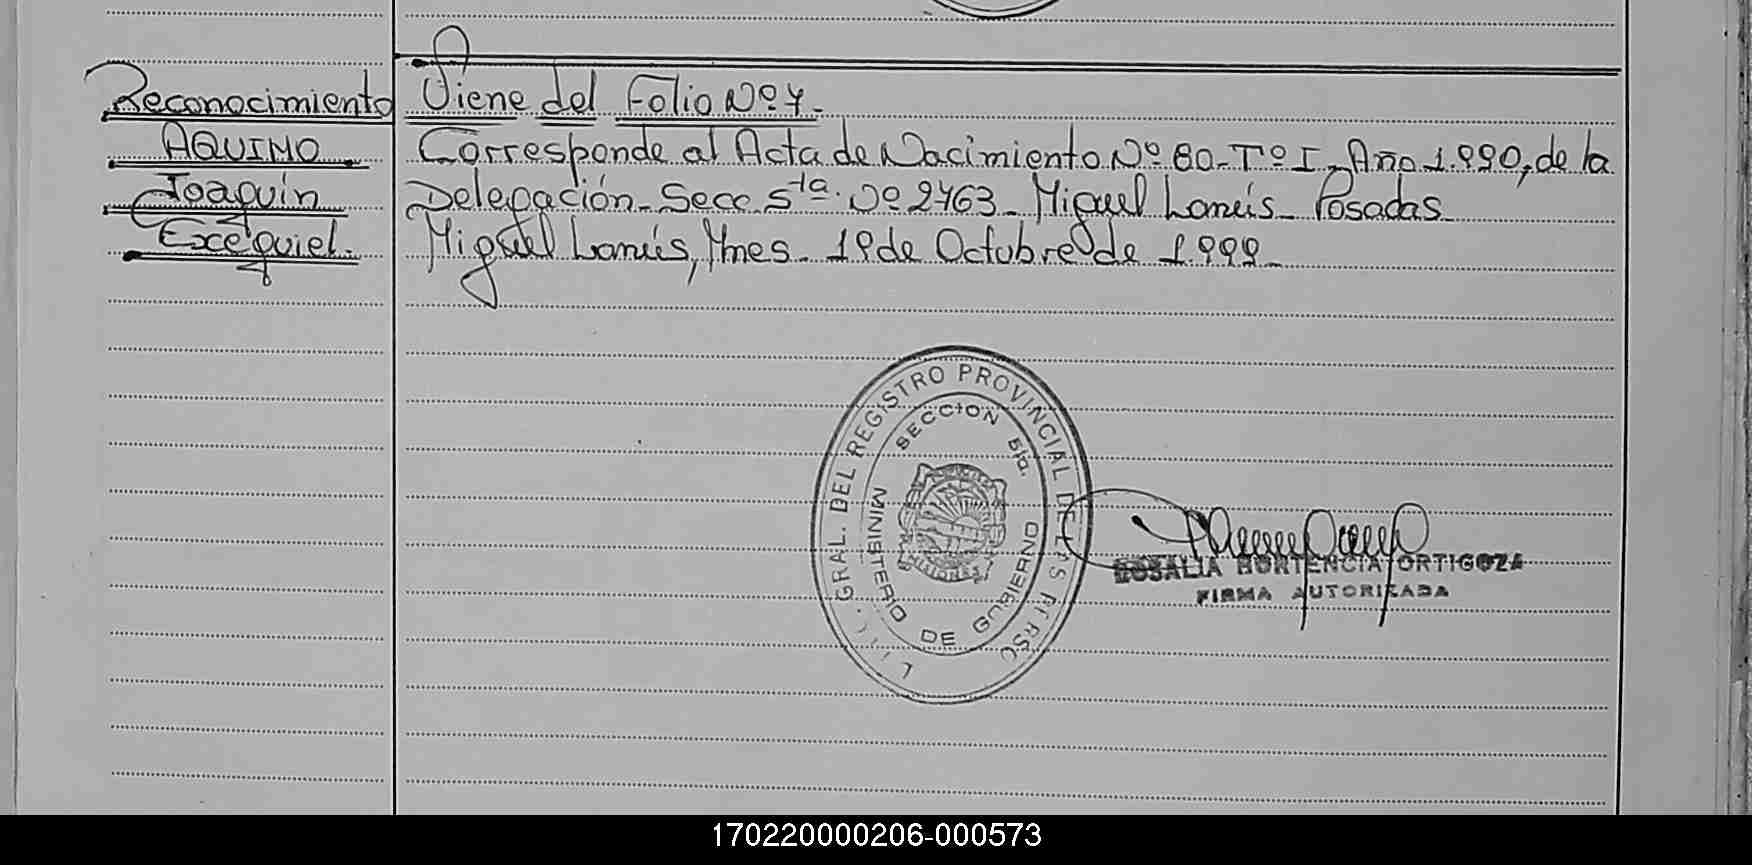 Reconocimiento
AQUINO
Joaquín
Exequiel.
Viene del Folio Nº 7.
Corresponde al Acta de Nacimiento Nº 80-Tº I-Año 1.990, de la
Delegación-Secc 5ta. Nº 2763-Miguel Lanús-Posadas
Miguel Lanús, Mnes-19 de Octubre de 1.999-
GRAL. DEL REGISTRO PROVINCIAL DE LAS PERSO
SECCION 5ta.
MINISTERIO DE GOBIERNO
MISIONES
ROSALIA HORTENCIA ORTIGOZA
FIRMA AUTORIZADA
170220000206-000573